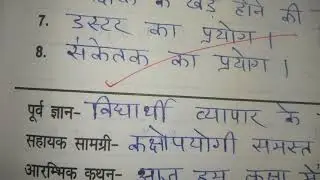 के खड़े होने की
7. डस्टर का प्रयोग।
8. संकेतक का प्रयोग।
पूर्व ज्ञान- विद्यार्थी व्यापार के
सहायक सामग्री- कक्षोपयोगी समस्त
आरम्भिक कथन- इस कक्षा में